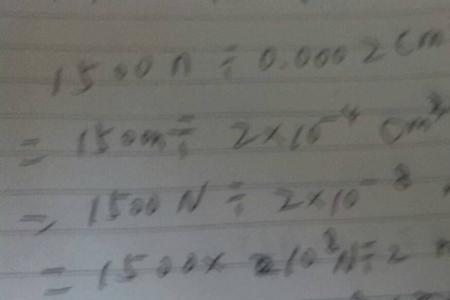 1500 n ÷ 0.0002 cm
= 150m ÷ 2×10⁻⁴ cm²
= 1500 N ÷ 2×10⁻⁸
= 1500 × 10⁸ N÷2